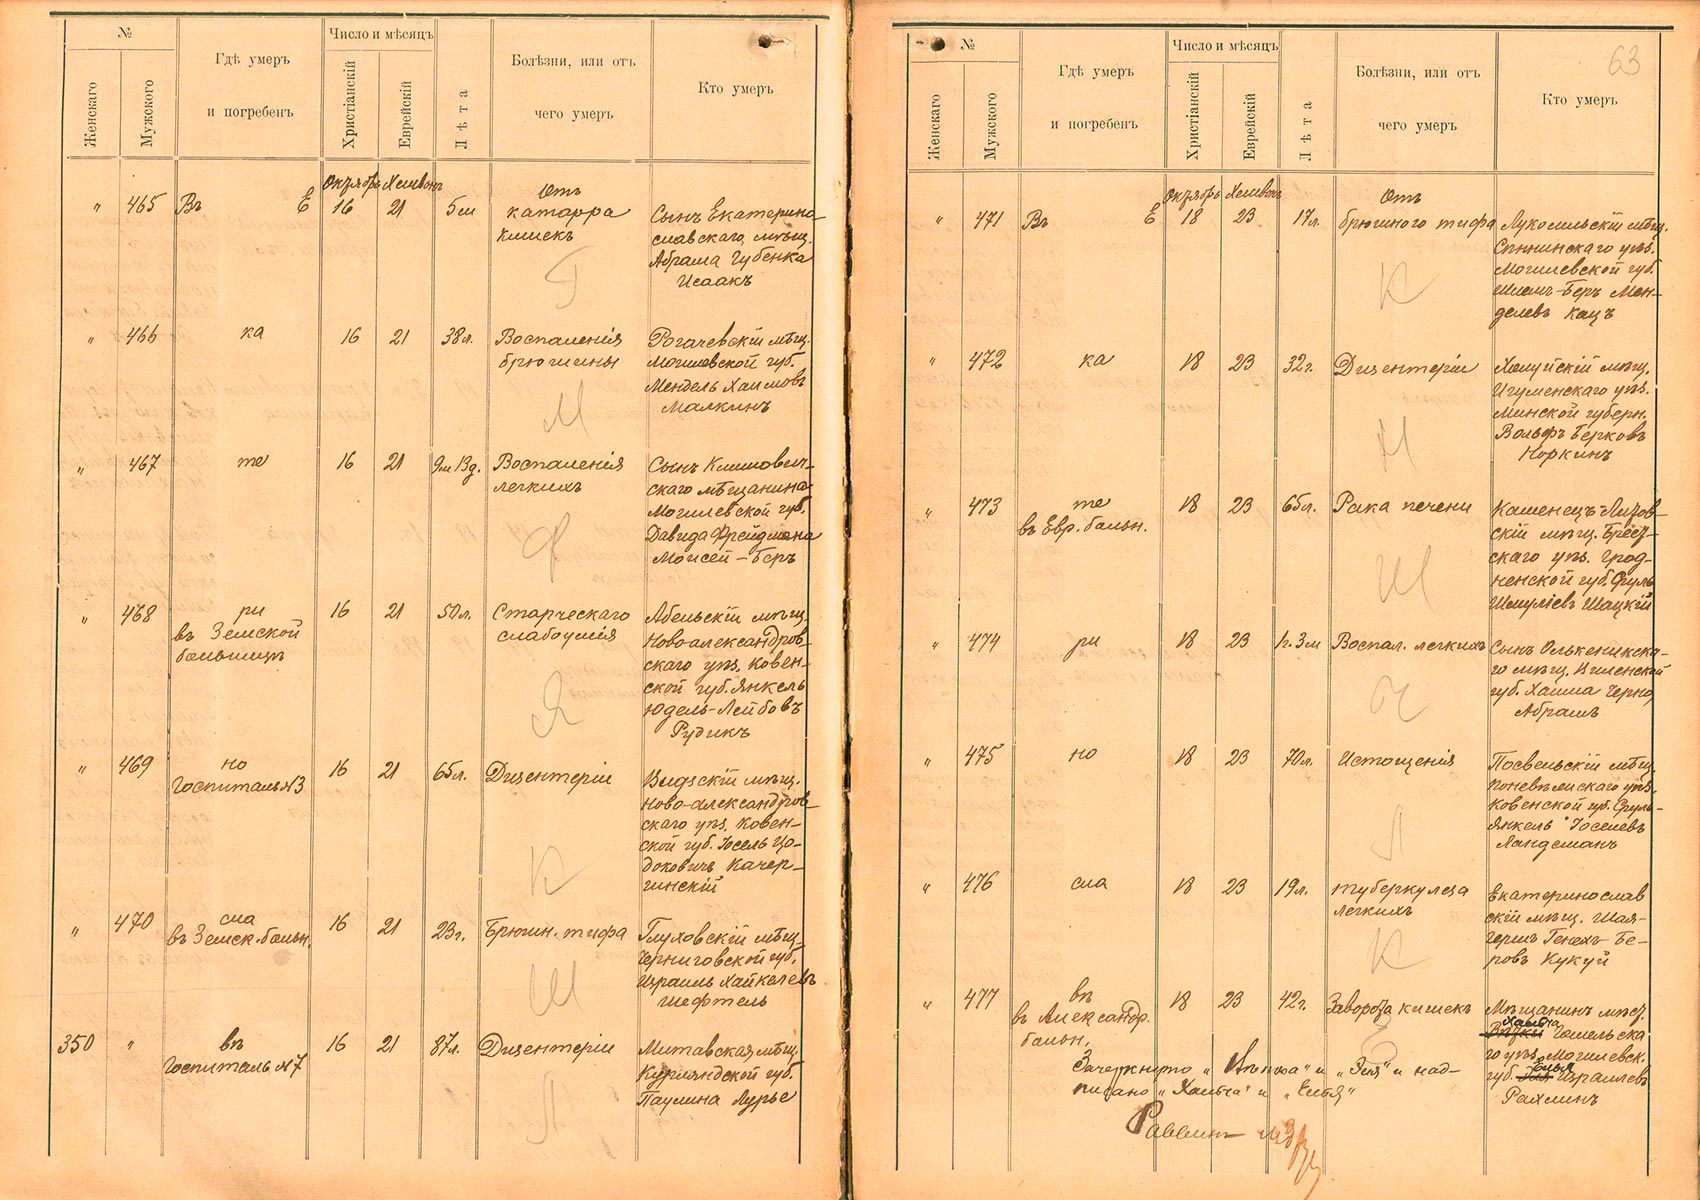 №
Число и мѣсяцъ
Женскаго
Мужского
Гдѣ умеръ
и погребенъ
Христіанскій
Еврейскій
Лѣта
Болѣзни, или отъ
чего умеръ
Кто умеръ
Октябрь Хешвонъ
" 465 Въ Е 16 21 5м
Отъ
катарра
кишекъ
Сынъ Екатерино
славскаго мѣщ.
Абрама Губенка
Исаакъ
Г
" 466 ка 16 21 38л.
Воспаленія
брюшины
Рогачевскій мѣщ.
Могилевской губ.
Мендель Хаимовъ
Малкинъ
М
" 467 те 16 21 9м 13д.
Воспаленія
легкихъ
Сынъ Климович-
скаго мѣщанина
Могилевской губ.
Давида Фрейдмана
Моисей-Беръ
Ф
" 468 ри 16 21 50л.
въ Земской
больницѣ
Старческаго
слабоумія
Абельскій мѣщ.
Ново-александров-
скаго уѣз. Ковен-
ской губ. Янкель
Юдель-Лейбовъ
Рудикъ
" 469 но 16 21 65л.
Госпиталь №3
Дизентеріи
Видзскій мѣщ.
Ново-александров-
скаго уѣз. Ковен-
ской губ. Іосель Цо-
доковичъ Качер-
гинскій
К
" 470 сла 16 21 23г.
въ Земск. больн.
Брюшн. тифа
Глуховскій мѣщ.
Черниговской губ.
Израиль Хайкелевъ
Шефтель
Ш
350 " въ 16 21 87л.
Госпиталь №7
Дизентеріи
Митавская мѣщ.
Курляндской губ.
Паулина Лурье
Л
63
№
Число и мѣсяцъ
Женскаго
Мужского
Гдѣ умеръ
и погребенъ
Христіанскій
Еврейскій
Лѣта
Болѣзни, или отъ
чего умеръ
Кто умеръ
Октябрь Хешвонъ
" 471 Въ Е 18 23 17л.
Отъ
брюшного тифа
Лукомльскій мѣщ.
Сѣннинскаго уѣз.
Могилевской губ.
Шлемъ-Беръ Мен-
делевъ Кацъ
К
" 472 ка 18 23 32г.
Дизентеріи
мѣщ.
Игуменскаго уѣз.
Минской губерн.
Вольфъ Берковъ
Норкинъ
Н
" 473 те 18 23 65л.
въ Евр. больн.
Рака печени
Каменецъ-Литов-
скій мѣщ. Брест-
скаго уѣз. Грод-
ненской губ. Сруль
Шмулiевъ Шацкій
Ш
" 474 ри 18 23 1г. 3м
Воспал. легкихъ
Сынъ Олькеникска-
го мѣщ. Виленской
губ. Хаима Черно,
Абрамъ
Ч
" 475 но 18 23 70л.
Истощенія
Посвельскій мѣщ.
Поневѣжскаго уѣз.
Ковенской губ. Сруль-
Янкель Іоселевъ
Ландсманъ
Л
" 476 сла 18 23 19л.
туберкулеза
легкихъ
Екатеринослав
скій мѣщ. Шая-
Герш Генехъ Бе-
ровъ Кукуй
К
" 477 въ 18 23 42г.
въ Александр.
больн.
Заворота кишекъ
Мѣщанинъ мѣст.
Хальча
Гомельска
го уѣз. Могилевск.
губ. Елья Израилевъ
Рахлинъ
Зачеркнуто " Вѣтка" и "Зея" и над-
писано "Хальча" и "Елья"
Раввинъ